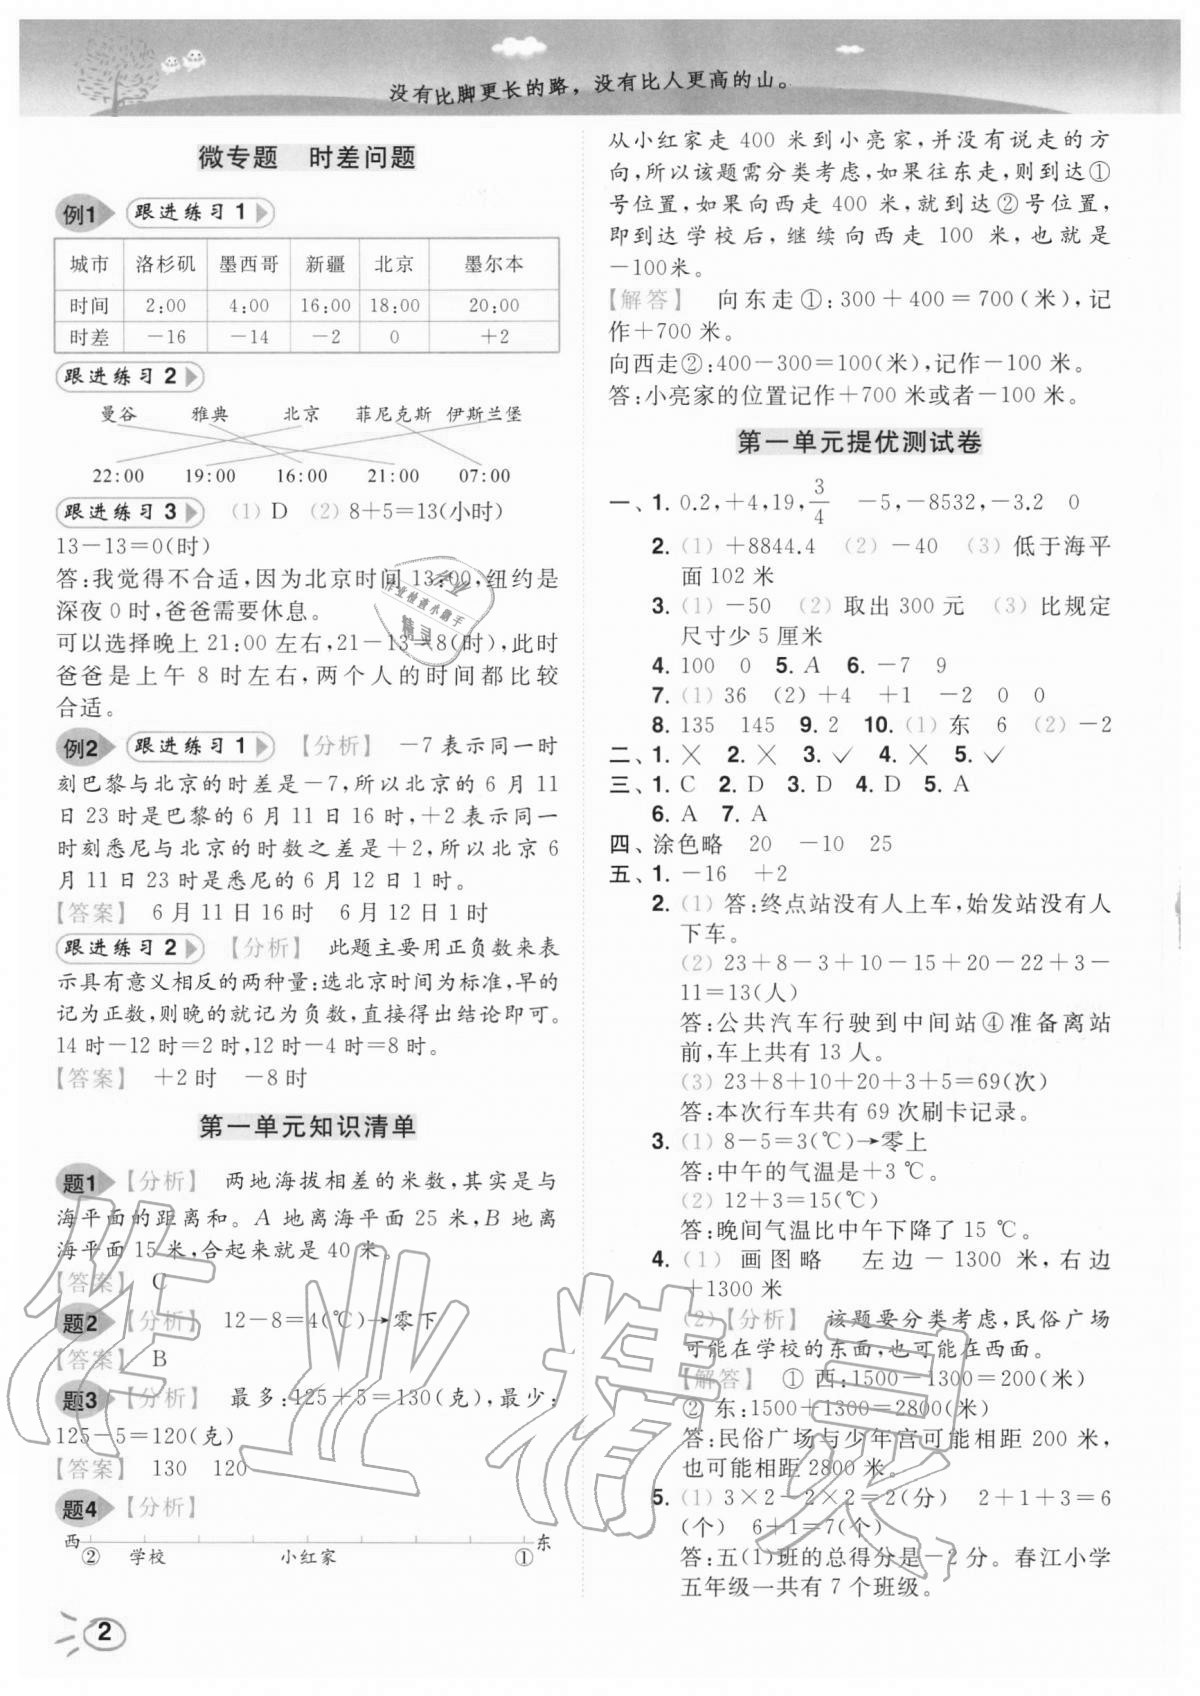 没有比脚更长的路，没有比人更高的山。
微专题　时差问题
例1 跟进练习 1
城市 洛杉矶 墨西哥 新疆 北京 墨尔本
时间 2:00 4:00 16:00 18:00 20:00
时差 －16 －14 －2 0 ＋2
跟进练习 2
曼谷 雅典 北京 菲尼克斯 伊斯兰堡
22:00 19:00 16:00 21:00 07:00
跟进练习 3 (1) D (2) 8＋5＝13(小时)
13－13＝0(时)
答:我觉得不合适,因为北京时间 13:00,纽约是
深夜 0 时,爸爸需要休息。
可以选择晚上 21:00 左右,21－13＝8(时),此时
爸爸是上午 8 时左右,两个人的时间都比较
合适。
例2 跟进练习 1 【分析】 －7 表示同一时
刻巴黎与北京的时差是－7,所以北京的 6 月 11
日 23 时是巴黎的 6 月 11 日 16 时,＋2 表示同一
时刻悉尼与北京的时数之差是＋2,所以北京 6
月 11 日 23 时是悉尼的 6 月 12 日 1 时。
【答案】 6 月 11 日 16 时 6 月 12 日 1 时
跟进练习 2 【分析】 此题主要用正负数来表
示具有意义相反的两种量:选北京时间为标准,早的
记为正数,则晚的就记为负数,直接得出结论即可。
14 时－12 时＝2 时,12 时－4 时＝8 时。
【答案】 ＋2 时 －8 时
第一单元知识清单
题1 【分析】 两地海拔相差的米数,其实是与
海平面的距离和。A 地离海平面 25 米,B 地离
海平面 15 米,合起来就是 40 米。
【答案】 C
题2 【分析】 12－8＝4(℃)→零下
【答案】 B
题3 【分析】 最多:125＋5＝130(克),最少:
125－5＝120(克)
【答案】 130 120
题4 【分析】
西 东
② 学校 小红家 ①
2
从小红家走 400 米到小亮家,并没有说走的方
向,所以该题需分类考虑,如果往东走,则到达①
号位置,如果向西走 400 米,就到达②号位置,
即到达学校后,继续向西走 100 米,也就是
－100米。
【解答】 向东走①:300＋400＝700(米),记
作＋700 米。
向西走②:400－300＝100(米),记作－100 米。
答:小亮家的位置记作＋700 米或者－100 米。
第一单元提优测试卷
一、1. 0.2,＋4,19,3/4 －5,－8532,－3.2 0
2. (1) ＋8844.4 (2) －40 (3) 低于海平
面 102 米
3. (1) －50 (2) 取出 300 元 (3) 比规定
尺寸少 5 厘米
4. 100 0 5. A 6. －7 9
7. (1) 36 (2) ＋4 ＋1 －2 0 0
8. 135 145 9. 2 10. (1) 东 6 (2) －2
二、1. ╳ 2. ╳ 3. ✓ 4. ╳ 5. ✓
三、1. C 2. D 3. D 4. D 5. A
6. A 7. A
四、涂色略 20 －10 25
五、1. －16 ＋2
2. (1) 答:终点站没有人上车,始发站没有人
下车。
(2) 23＋8－3＋10－15＋20－22＋3－
11＝13(人)
答:公共汽车行驶到中间站④准备离站
前,车上共有 13 人。
(3) 23＋8＋10＋20＋3＋5＝69(次)
答:本次行车共有 69 次刷卡记录。
3. (1) 8－5＝3(℃)→零上
答:中午的气温是＋3 ℃。
(2) 12＋3＝15(℃)
答:晚间气温比中午下降了 15 ℃。
4. (1) 画图略 左边－1300 米,右边
＋1300 米
(2)【分析】 该题要分类考虑,民俗广场
可能在学校的东面,也可能在西面。
【解答】 ① 西:1500－1300＝200(米)
② 东:1500＋1300＝2800(米)
答:民俗广场与少年宫可能相距 200 米,
也可能相距 2800 米。
5. (1) 3×2－2×2＝2(分) 2＋1＋3＝6
(个) 6＋1＝7(个)
答:五(1)班的总得分是－2 分。春江小学
五年级一共有 7 个班级。
作业精灵